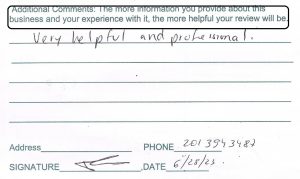 Additional Comments: The more information you provide about this
business and your experience with it, the more helpful your review will be.
Very helpful and professional.
Address PHONE 201 3943487
SIGNATURE ,DATE 6/25/23.